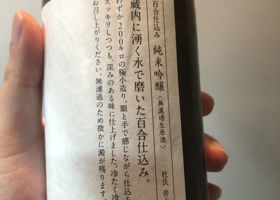 百合仕込み 純米吟醸〈無濾過生原酒〉
蔵内に湧く水で磨いた百合仕込み。
わずか200キロの極小造り。眼と手で感じながら仕込
スッキリしつつも、深みのある味に仕上げました。冷たく冷
お召し上がりください。無濾過のため微かに澱が残ります。
杜氏